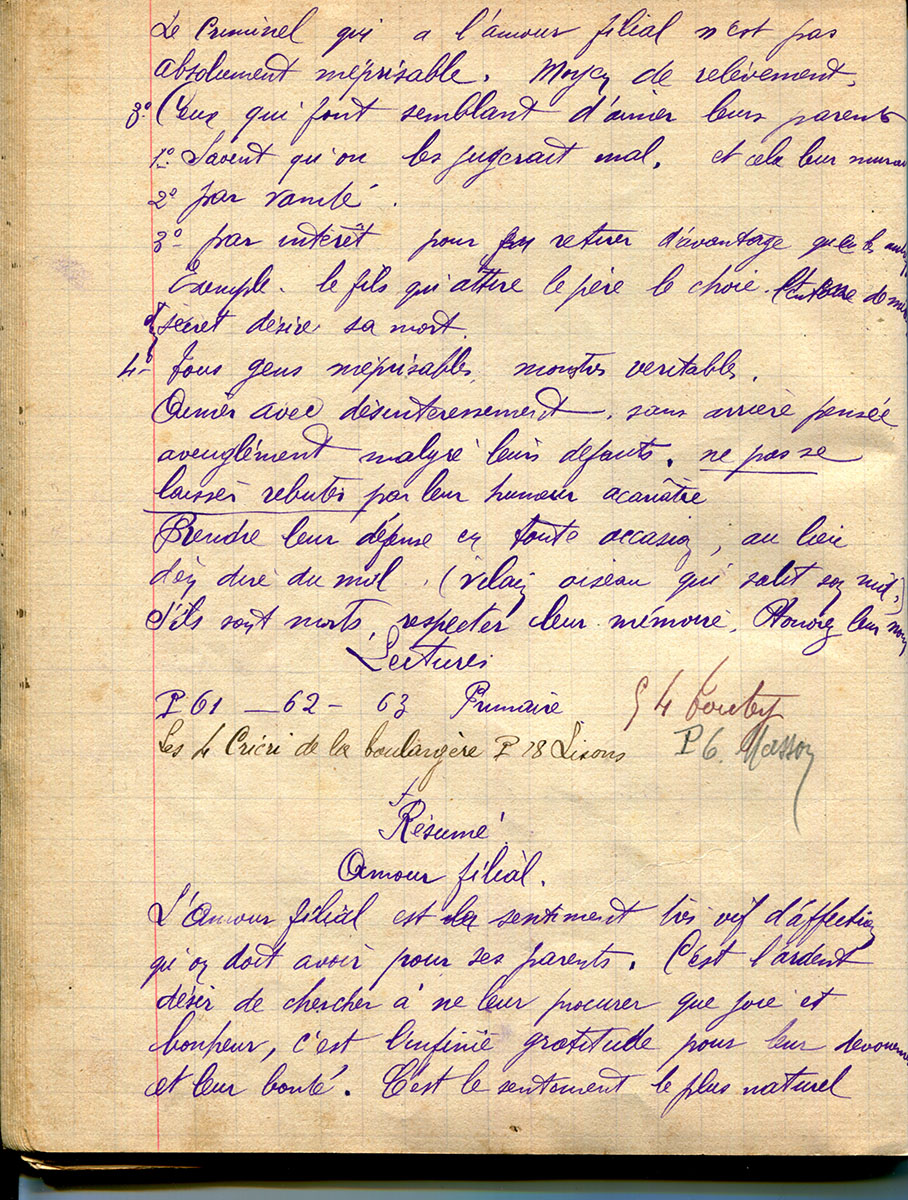 Le Criminel qui a l'amour filial n'est pas
absolument méprisable. Moyen de relèvement.
3º Ceux qui font semblant d'aimer leurs parents
1º Savent qu'on les jugerait mal. et cela leur
2º par vanité.
3º par intérêt pour retirer d'avantage que les
Exemple. le fils qui attire le père le choie. de
secret désire sa mort.
4º Tous gens méprisables, monstres véritables.
Aimer avec désintéressement, sans arrière pensée
aveuglément malgré leurs défauts. ne pas se
laisser rebuter par leur humeur acariâtre
Prendre leur défense en toute occasion, au lieu
d'en dire du mal. (Vilain oiseau qui salit son nid.)
S'ils sont morts, respecter leur mémoire. Honorez leur nom
Lectures
P 61 — 62 - 63 Primaire § 4
Les 4 Cricri de la boulangère P 18 Lisons P 6. Masson
Résumé
Amour filial.
L'Amour filial est le sentiment très vif d'affection
qu'on doit avoir pour ses parents. C'est l'ardent
désir de chercher à ne leur procurer que joie et
bonheur, c'est l'infinie gratitude pour leur dévouement
et leur bonté. C'est le sentiment le plus naturel